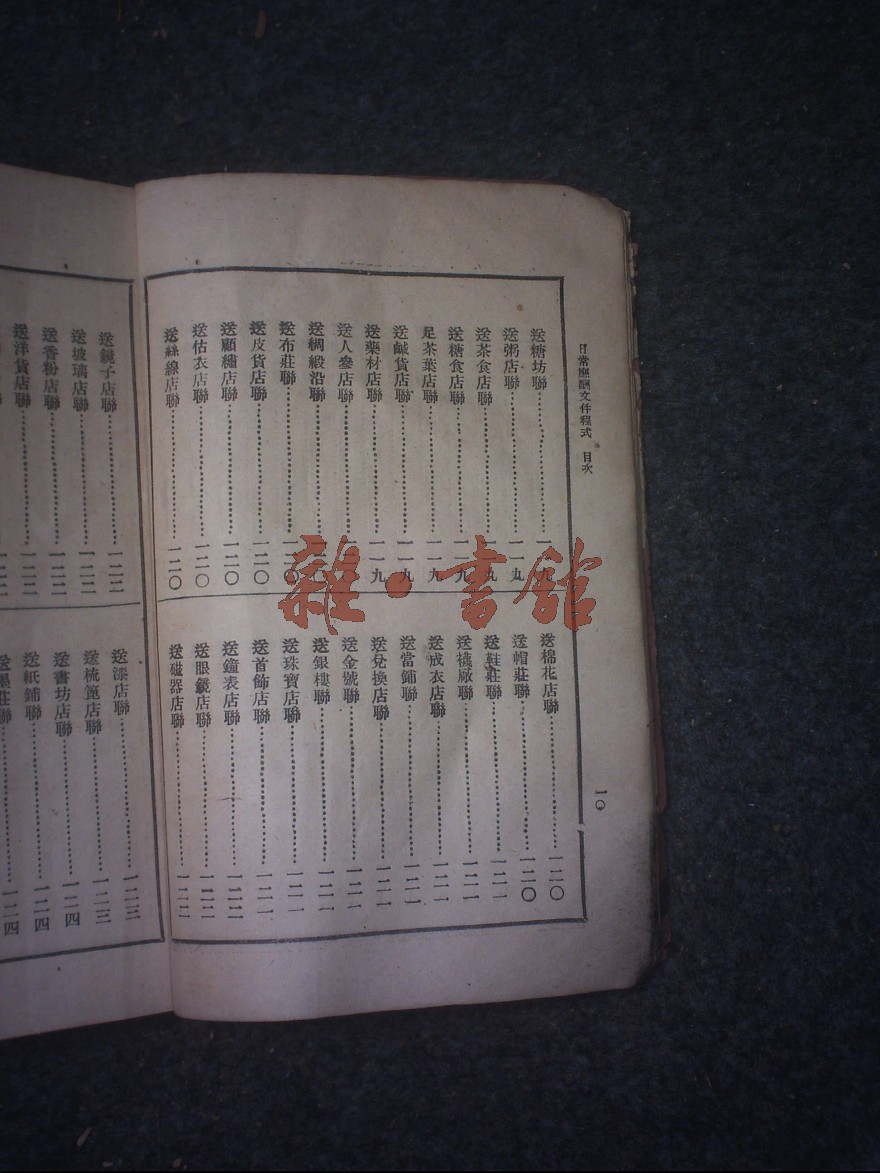 日常應酬文件程式 目次
一〇
送糖坊聯 一一九
送粥店聯 一一九
送茶食店聯 一一九
送糖食店聯 一一九
足茶葉店聯 一一九
送鹹貨店聯 一一九
送藥材店聯 一一九
送人參店聯 一二〇
送綢緞沿聯 一二〇
送布莊聯 一二〇
送皮貨店聯 一二〇
送顧繡店聯 一二〇
送估衣店聯 一二〇
送絲線店聯 一二〇
送棉花店聯 一二〇
送帽莊聯 一二〇
送鞋莊聯 一二一
送襪廠聯 一二一
送成衣店聯 一二一
送當鋪聯 一二一
送兌換店聯 一二一
送金號聯 一二一
送銀樓聯 一二一
送珠寶店聯 一二一
送首飾店聯 一二一
送鐘表店聯 一二二
送眼鏡店聯 一二二
送磁器店聯 一二二
送鏡子店聯 一二二
送玻璃店聯 一二二
送香粉店聯 一二二
送洋貨店聯 一二二
送漆店聯 一二三
送梳篦店聯 一二三
送書坊店聯 一二四
送紙鋪聯 一二四
送墨莊聯 一二四
雜·書館